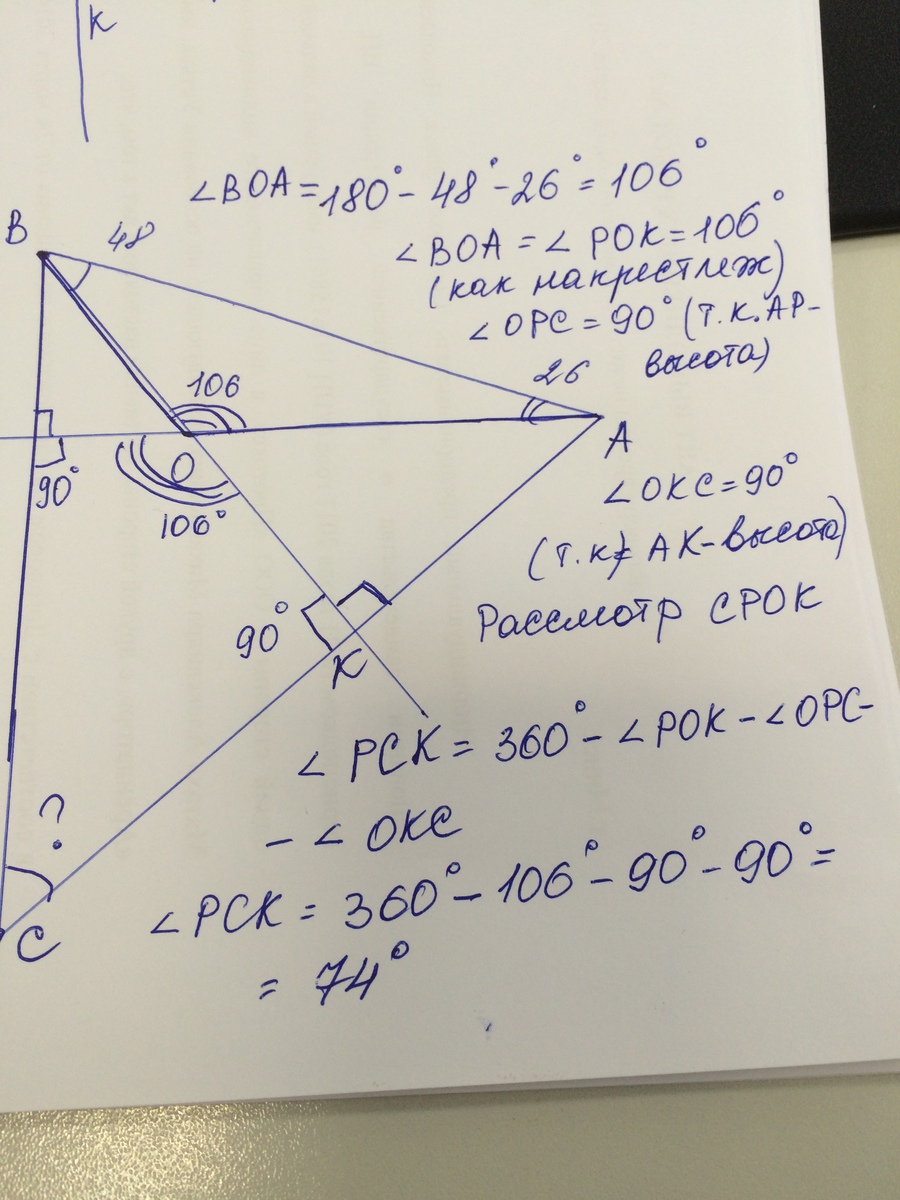 K
∠BOA = 180° - 48° - 26° = 106°
B
48
∠BOA = ∠POK = 106°
(как накрестлеж)
∠OPC = 90° (т.к. AP-
высота)
26
106
A
O
90°
106°
∠OKC = 90°
(т.к. AK-высота)
Рассмотр CPOK
90°
K
∠PCK = 360° - ∠POK - ∠OPC -
- ∠OKC
?
∠PCK = 360° - 106° - 90° - 90° =
C
= 74°